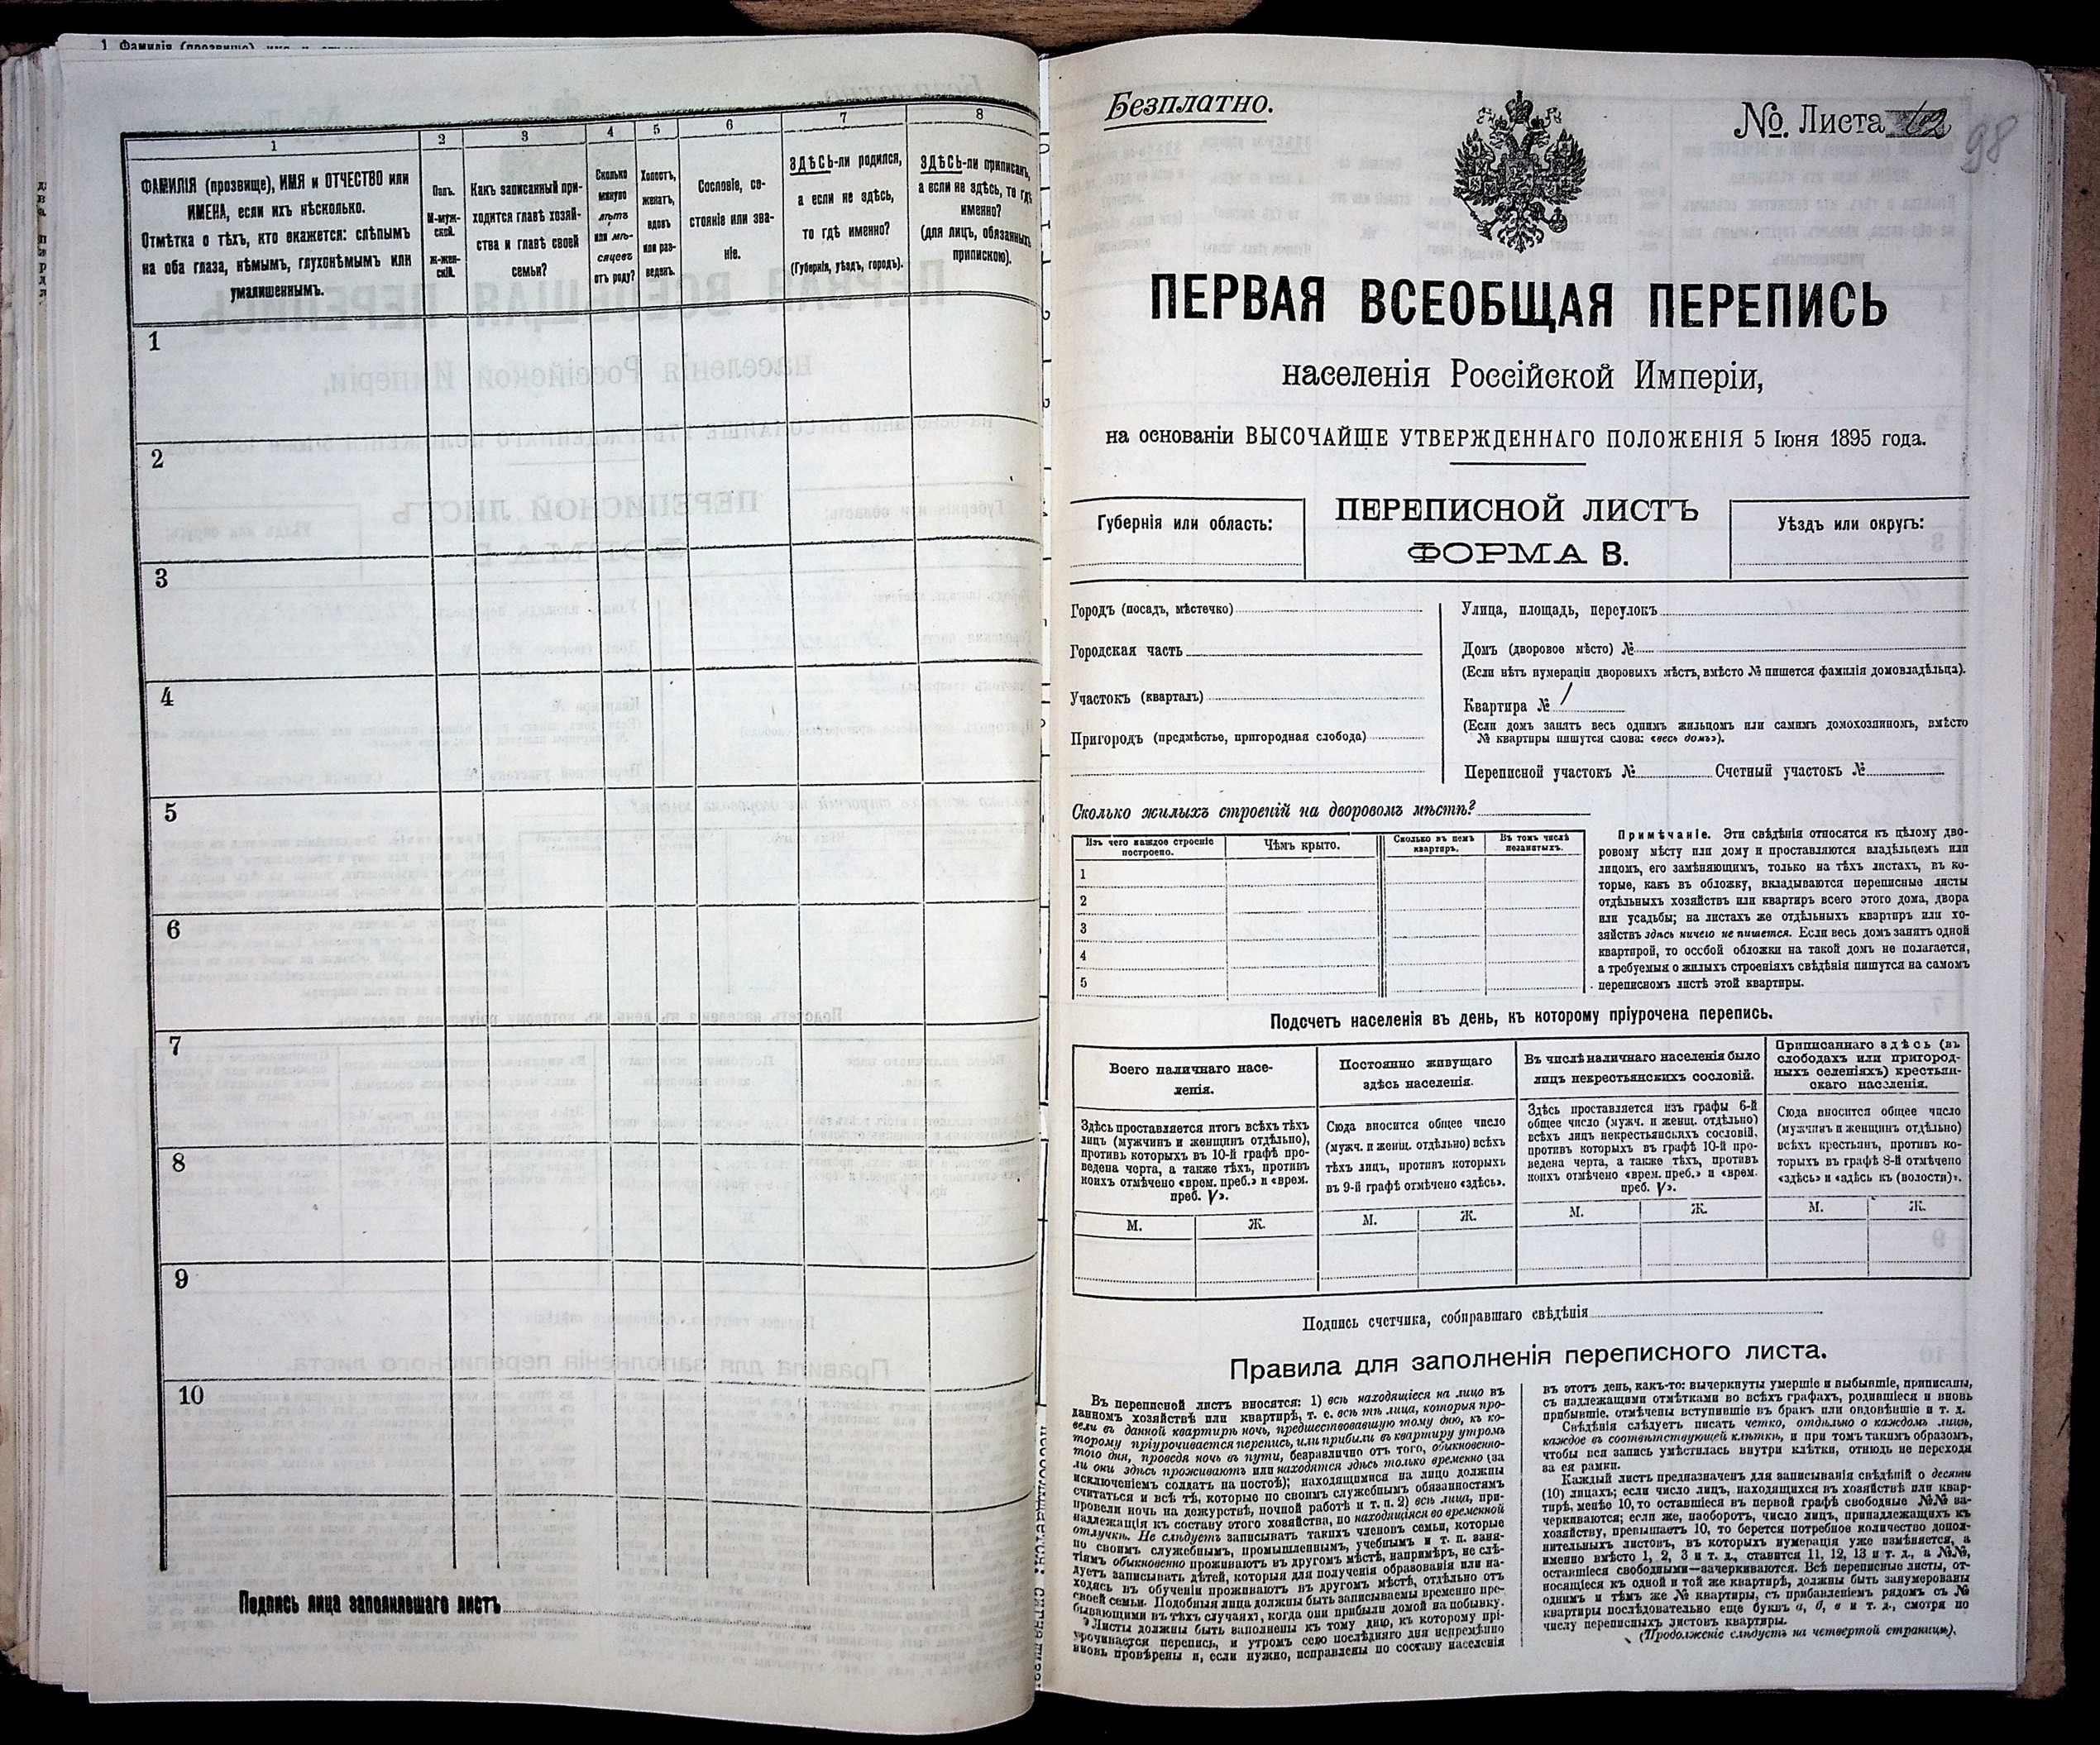 1 2 3 4 5 6 7 8
ФАМИЛІЯ (прозвище), ИМЯ и ОТЧЕСТВО или
ИМЕНА, если ихъ нѣсколько.
Отмѣтка о тѣхъ, кто окажется: слѣпымъ
на оба глаза, нѣмымъ, глухонѣмымъ или
умалишеннымъ.
Полъ.
М-муж-
ской.
Ж-жен-
скій.
Какъ записанный при-
ходится главѣ хозяй-
ства и главѣ своей
семьи?
Сколько
минуло
лѣтъ
или мѣ-
сяцевъ
отъ роду?
Холостъ,
женатъ,
вдовъ
или раз-
веденъ.
Сословіе, со-
стояніе или зва-
ніе.
ЗДѢСЬ-ли родился,
а если не здѣсь,
то гдѣ именно?
(Губернія, уѣздъ, городъ).
ЗДѢСЬ-ли приписанъ,
а если не здѣсь, то гдѣ
именно?
(для лицъ, обязанныхъ
припискою).
1
2
3
4
5
6
7
8
9
10
Подпись лица заполнявшаго листъ
Безплатно.
№. Листа 12
98
ПЕРВАЯ ВСЕОБЩАЯ ПЕРЕПИСЬ
населенія Россійской Имперіи,
на основаніи ВЫСОЧАЙШЕ УТВЕРЖДЕННАГО ПОЛОЖЕНІЯ 5 Іюня 1895 года.
Губернія или область:
ПЕРЕПИСНОЙ ЛИСТЪ
ФОРМА В.
Уѣздъ или округъ:
Городъ (посадъ, мѣстечко)
Городская часть
Участокъ (кварталъ)
Пригородъ (предмѣстье, пригородная слобода)
Улица, площадь, переулокъ
Домъ (дворовое мѣсто) №
(Если нѣтъ нумераціи дворовыхъ мѣстъ, вмѣсто № пишется фамилія домовладѣльца).
Квартира № 1
(Если домъ занятъ весь однимъ жильцомъ или самимъ домохозяиномъ, вмѣсто
№ квартиры пишутся слова: «весь домъ»).
Переписной участокъ № Счетный участокъ №
Сколько жилыхъ строеній на дворовомъ мѣстѣ?
Изъ чего каждое строеніе
построено.
Чѣмъ крыто.
Сколько въ немъ
квартиръ.
Въ томъ числѣ
незанятыхъ.
1
2
3
4
5
Примѣчаніе. Эти свѣдѣнія относятся къ цѣлому дво-
ровому мѣсту или дому и проставляются владѣльцемъ или
лицомъ, его замѣняющимъ, только на тѣхъ листахъ, въ ко-
торые, какъ въ обложку, вкладываются переписные листы
отдѣльныхъ хозяйствъ или квартиръ всего этого дома, двора
или усадьбы; на листахъ же отдѣльныхъ квартиръ или хо-
зяйствъ здѣсь ничего не пишется. Если весь домъ занятъ одной
квартирой, то особой обложки на такой домъ не полагается,
а требуемыя о жилыхъ строеніяхъ свѣдѣнія пишутся на самомъ
переписномъ листѣ этой квартиры.
Подсчетъ населенія въ день, къ которому пріурочена перепись.
Всего наличнаго насе-
ленія.
Здѣсь проставляется итогъ всѣхъ тѣхъ
лицъ (мужчинъ и женщинъ отдѣльно),
противъ которыхъ въ 10-й графѣ про-
ведена черта, а также тѣхъ, противъ
коихъ отмѣчено «врем. преб.» и «врем.
преб. V».
Постоянно живущаго
здѣсь населенія.
Сюда вносится общее число
(мужч. и женщ. отдѣльно) всѣхъ
тѣхъ лицъ, противъ которыхъ
въ 9-й графѣ отмѣчено «здѣсь».
Въ числѣ наличнаго населенія было
лицъ некрестьянскихъ сословій.
Здѣсь проставляется изъ графы 6-й
общее число (мужч. и женщ. отдѣльно)
всѣхъ лицъ некрестьянскихъ сословій,
противъ которыхъ въ графѣ 10-й про-
ведена черта, а также тѣхъ, противъ
коихъ отмѣчено «врем. преб.» и «врем.
преб. V».
Приписаннаго здѣсь (въ
слободахъ или пригород-
ныхъ селеніяхъ) крестьян-
скаго населенія.
Сюда вносится общее число
(мужчинъ и женщинъ отдѣльно)
всѣхъ крестьянъ, противъ ко-
торыхъ въ графѣ 8-й отмѣчено
«здѣсь» и «здѣсь къ (волости)».
М. Ж. М. Ж. М. Ж. М. Ж.
Подпись счетчика, собиравшаго свѣдѣнія
Правила для заполненія переписного листа.
Въ переписной листъ вносятся: 1) всѣ находящіеся на лицо въ
данномъ хозяйствѣ или квартирѣ, т. е. всѣ тѣ лица, которыя про-
вели въ данной квартирѣ ночь, предшествовавшую тому дню, къ ко-
торому пріурочивается перепись, или прибыли въ квартиру утромъ
того дня, проведя ночь въ пути, безразлично отъ того, обыкновенно-
ли они здѣсь проживаютъ или находятся здѣсь только временно (за
исключеніемъ солдатъ на постоѣ); находящимися на лицо должны
считаться и всѣ тѣ, которые по своимъ служебнымъ обязанностямъ
провели ночь на дежурствѣ, ночной работѣ и т. п. 2) всѣ лица, при-
надлежащія къ составу этого хозяйства, но находящіяся во временной
отлучкѣ. Не слѣдуетъ записывать такихъ членовъ семьи, которые
по своимъ служебнымъ, промышленнымъ, учебнымъ и т. п. заня-
тіямъ обыкновенно проживаютъ въ другомъ мѣстѣ, напримѣръ, не слѣ-
дуетъ записывать дѣтей, которыя для полученія образованія или на-
ходясь въ обученіи проживаютъ въ другомъ мѣстѣ, отдѣльно отъ
своей семьи. Подобныя лица должны быть записываемы временно пре-
бывающими въ тѣхъ случаяхъ, когда они прибыли домой на побывку.
Листы должны быть заполнены къ тому дню, къ которому прі-
урочивается перепись, и утромъ сего послѣдняго дня непремѣнно
вновь провѣрены и, если нужно, исправлены по составу населенія
въ этотъ день, какъ-то: вычеркнуты умершіе и выбывшіе, приписаны,
съ надлежащими отмѣтками во всѣхъ графахъ, родившіеся и вновь
прибывшіе, отмѣчены вступившіе въ бракъ или овдовѣвшіе и т. д.
Свѣдѣнія слѣдуетъ писать четко, отдѣльно о каждомъ лицѣ,
каждое въ соотвѣтствующей клѣткѣ, и при томъ такимъ образомъ,
чтобы вся запись умѣстилась внутри клѣтки, отнюдь не переходя
за ея рамки.
Каждый листъ предназначенъ для записыванія свѣдѣній о десяти
(10) лицахъ; если число лицъ, находящихся въ хозяйствѣ или квар-
тирѣ, менѣе 10, то оставшіеся въ первой графѣ свободные №№ за-
черкиваются; если же, наоборотъ, число лицъ, принадлежащихъ къ
хозяйству, превышаетъ 10, то берется потребное количество допол-
нительныхъ листовъ, въ которыхъ нумерація уже измѣняется, а
именно вмѣсто 1, 2, 3 и т. д., ставится 11, 12, 13 и т. д., а №№,
оставшіеся свободными—зачеркиваются. Всѣ переписные листы, от-
носящіеся къ одной и той же квартирѣ, должны быть занумерованы
однимъ и тѣмъ же № квартиры, съ прибавленіемъ рядомъ съ №
квартиры послѣдовательно еще буквъ а, б, в и т. д., смотря по
числу переписныхъ листовъ квартиры.
(Продолженіе слѣдуетъ на четвертой страницѣ).